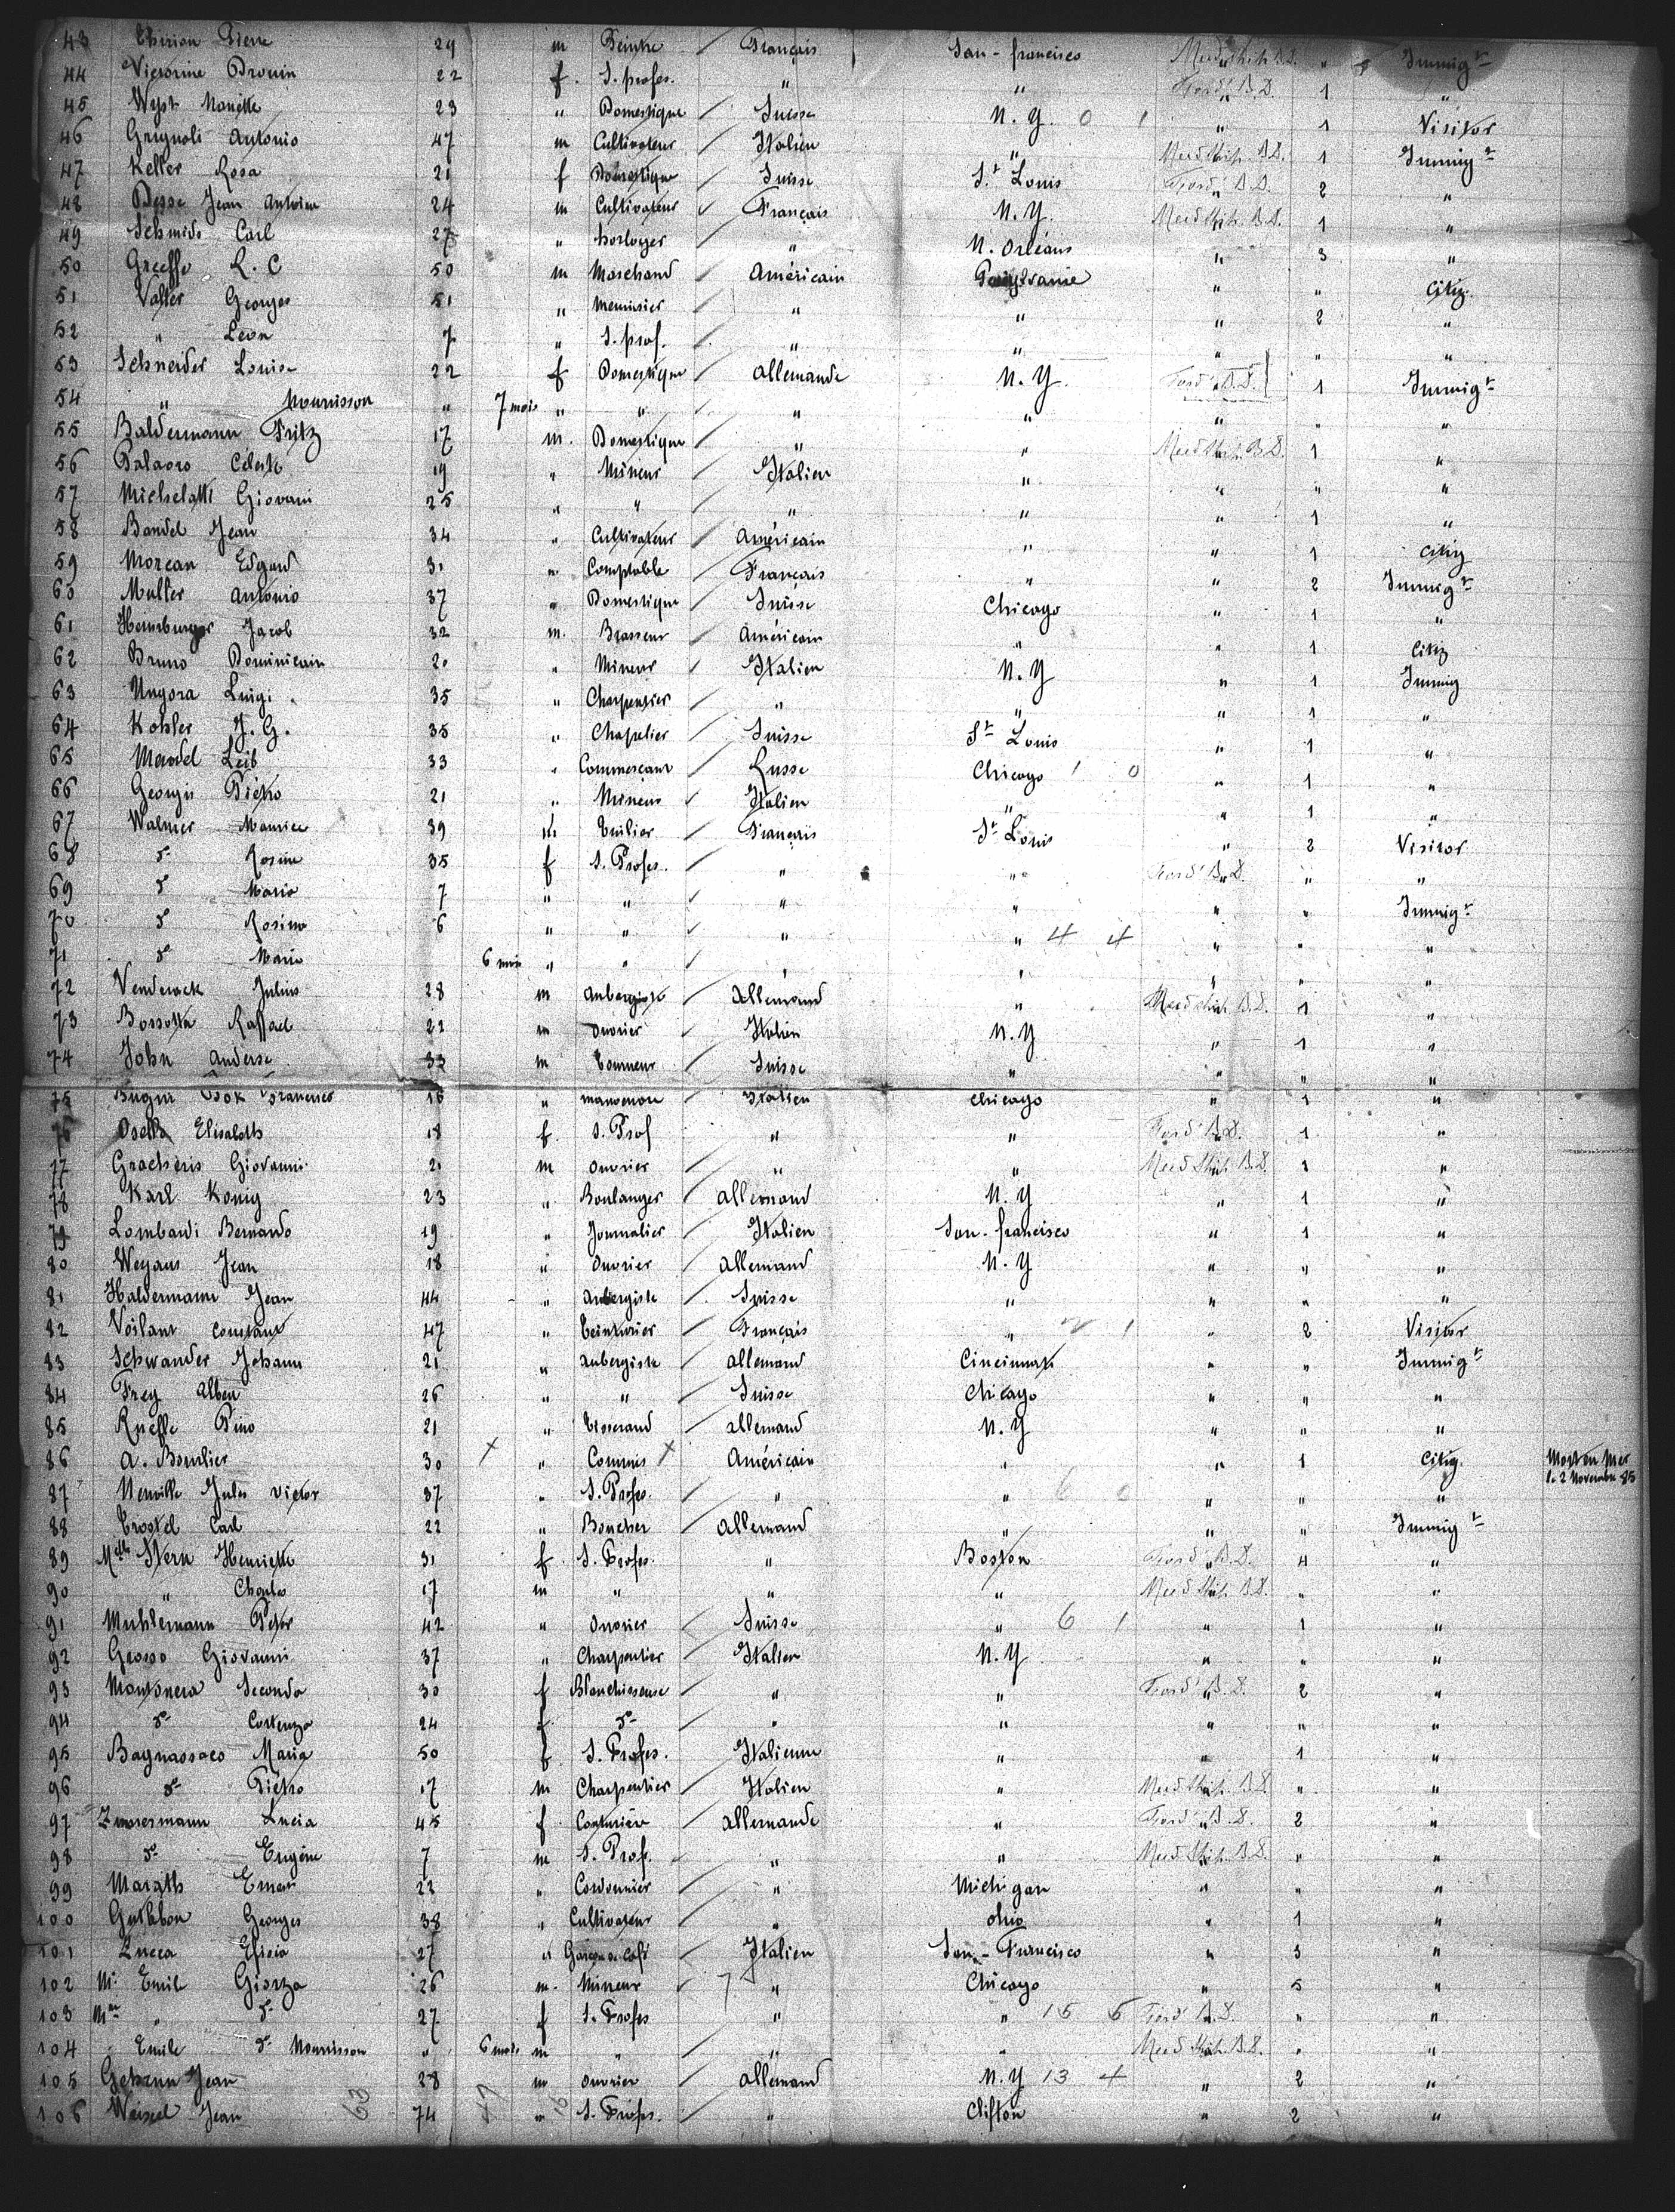 43 Pierre 29 m Peintre Français San-francisco Immigt
44 Victorine Drouin 22 f. S. profes. " " Forwd B.D. 1 "
45 Wyst 23 " Domestique Suisse N.Y. 0 1 " 1 Visitor
46 Grignoli Antonio 47 m Cultivateur Italien " Mied Ship. B.D. 1 Immigt
47 Keller Rosa 21 f Domestique Suisse St Louis B.D. 2 "
48 Besse Jean Antoine 24 m Cultivateur Français N.Y. Mied Ship. B.D. 1 "
49 Schmids Carl 27 " horloger " N. Orléans " 3 "
50 L. C 50 m Marchand Américain " " City.
51 Valter Georges 51 " Menuisier " " " 2 "
52 " Léon 7 " S. prof. " " " " "
53 Schneider Louise 22 f Domestique allemande N.Y. B.D. 1 Immigt
54 " Nourrisson " 7 mois " " " " " " "
55 Baldermann Fritz 17 m. Domestique " " Mied Ship. B.D. 1 "
56 Palaoro Celeste 19 " Mineur Italien " " " "
57 Michelatti Giovani 25 " " " " " 1 "
58 Bandel Jean 34 " Cultivateur Américain " " 1 City
59 Morean Edgard 31 " Comptable Français " " 2 Immigt
60 Muller Antonio 37 " Domestique Suisse Chicago " 1 "
61 Heimburger Jacob 32 m. Brasseur Américain " " 1 City
62 Bruno Dominicain 20 " Mineur Italien N.Y " 1 Immig
63 Ungora Luigi 35 " Charpentier " " " 1 "
64 Kohler J. G. 35 " Chapelier Suisse St Louis " 1 "
65 Mandel Leib 33 " Commercant Russe Chicago 1 0 " 1 "
66 Georgis Pietro 21 " Mineur Italien " " 1 "
67 Walmer Maurice 39 m. Tuilier Français St Louis " 2 Visitor
68 do Rosine 35 f S. Profes. " " B.D. " "
69 do Maria 7 " " " " " " Immigt
70 do Rosine 6 " " " " 4 4 " " "
71 do Marie 6 mois " " " " " " "
72 Julius 28 m Aubergiste Allemand " Mied Ship B.D. 1 "
73 Bossotta Raffael 22 m Ouvrier Italien N.Y " 1 "
74 John Anderse 33 m Tourneur Suisse " " " "
75 16 " Italien Chicago " 1 "
76 Osella Elisabeth 18 f. S. Prof " " B.D. 1 "
77 Giovanni 21 m Ouvrier " " Mied Ship. B.D. 1 "
78 Karl König 23 " Boulanger allemand N.Y " 1 "
79 Lombardi Bernardo 19 " Journalier Italien San-francisco " 1 "
80 Weyaus Jean 18 " Ouvrier allemand N.Y " " "
81 Haldermann Jean 44 " Aubergiste Suisse " " " "
82 Voilant Constant 47 " Teinturier Français " 2 1 " 2 Visitor
83 Schwander Johann 21 " Aubergiste allemand Cincinnati " " Immigt
84 Frey Albert 26 " " Suisse Chicago " " "
85 Ruelle Pino 21 " Tisserand allemand N.Y " " "
86 A. Bouvlier 30 X " Commis X Américain " " 1 City. Mort en Mer le 2 Novembre 85
87 Neuville Jules Victor 37 " S. Profes. " " 6 0 " " "
88 Trostel Carl 22 " Boucher Allemand " " " Immigt
89 Melle Stern Henriette 31 f. S. Profes. " Boston B.D. 4 "
90 " Charles 17 m " " " Mied Ship. B.D. " "
91 Muhlemann Peter 42 " Ouvrier Suisse " 6 1 " 1 "
92 Grosso Giovanni 37 " Charpentier Italien N.Y " " "
93 Montonera Seconda 30 f Blanchisseuse " " B.D. 2 "
94 do Costenza 24 f. do " " " " "
95 Bagnassaco Maria 50 f. S. Profes. Italienne " " 1 "
96 do Pietro 17 m Charpentier Italien " Mied Ship. B.D. " "
97 Zimmermann Lucia 45 f Couturière allemande " B.D. 2 "
98 do Eugène 7 m S. Prof. " " Mied Ship. B.D. " "
99 Marath 22 " Cordonnier " Michigan " " "
100 Gutlebon Georges 38 " Cultivateur " Ohio " 1 "
101 Lucca Eficio 27 " Garçon de Café Italien San-Francisco " 3 "
102 Mr Emile Giorza 26 m. Mineur " Chicago " 5 "
103 Me " do 27 f S. Profes " " 15 5 B.D. " "
104 Emile do Nourrisson " 6 mois m " " " Mied Ship. B.D. " "
105 Jean 28 m ouvrier allemand N.Y 13 4 " 2 "
106 Jean 63 74 47 16 " S. Profes. " Clifton " 2 "